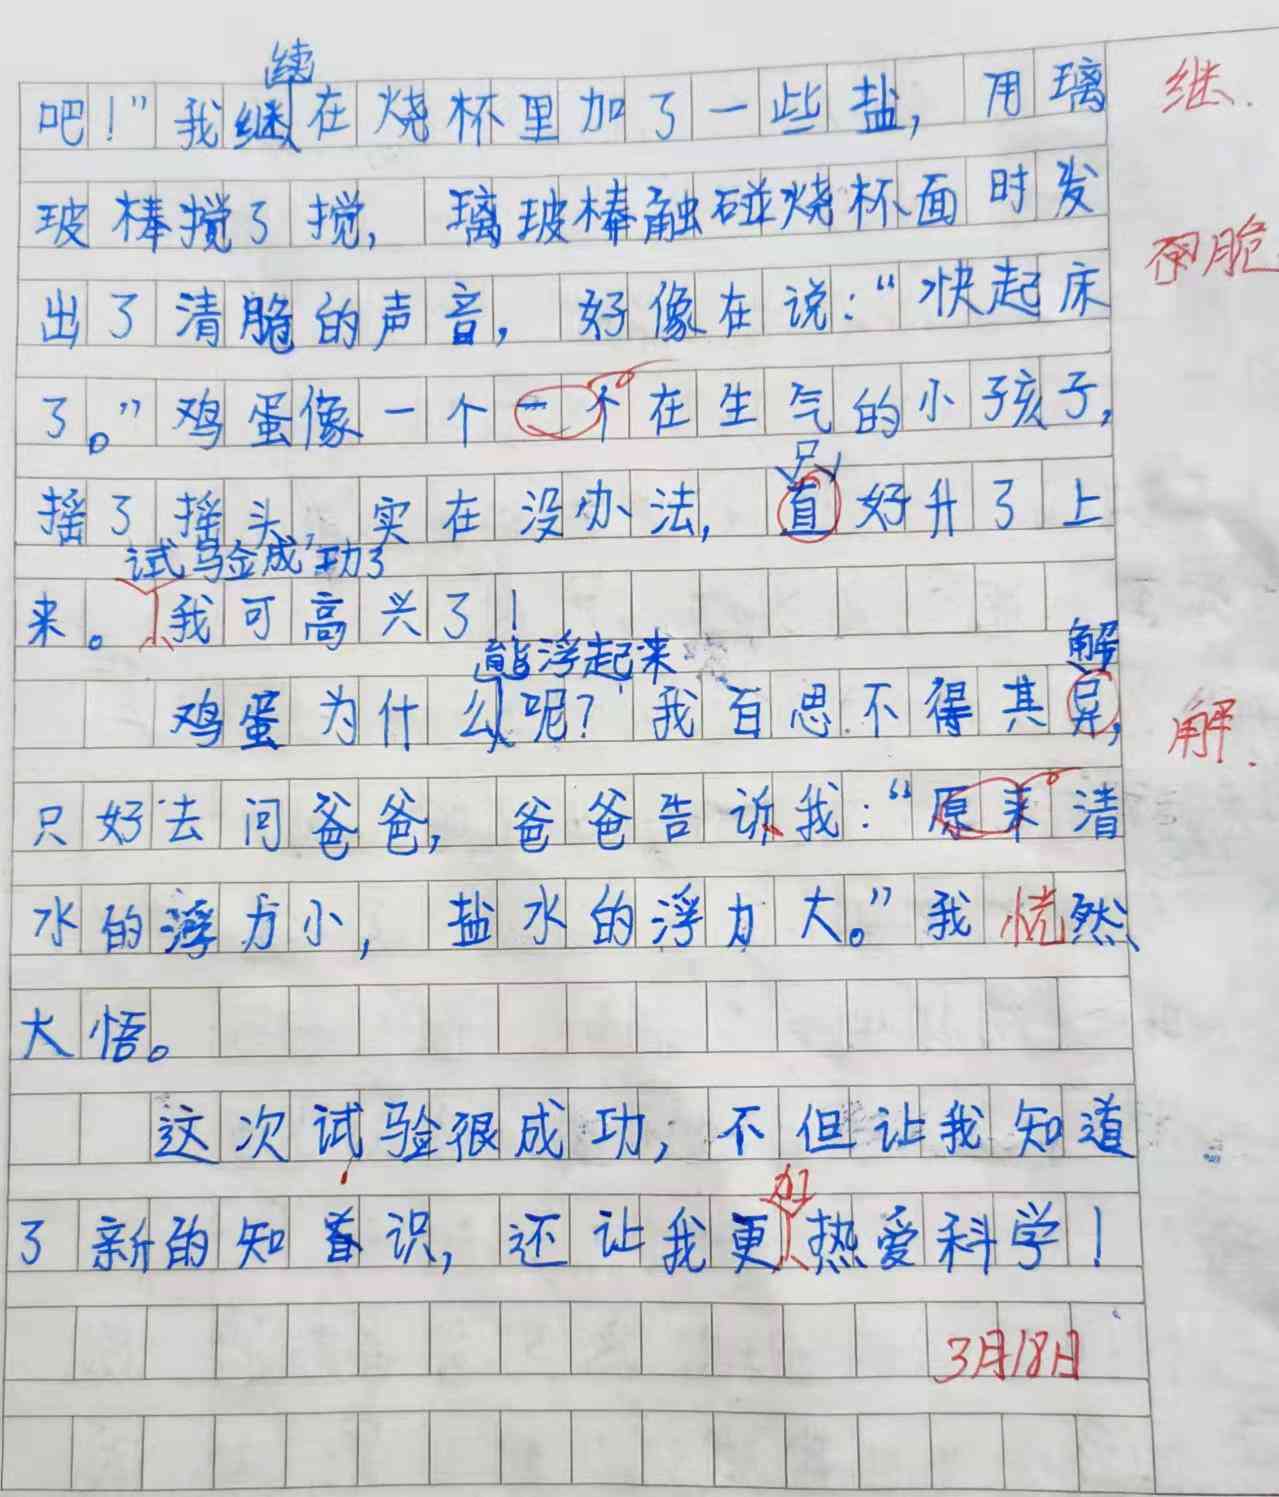 续
吧！”我继在烧杯里加了一些盐，用璃 继.
玻棒搅了搅，璃玻棒触碰烧杯面时发
出了清脆的声音，好像在说：“快起床 脆
了。”鸡蛋像一个一个在生气的小孩子，
只
摇了摇头，实在没办法，直好升了上
试验成功了
来。我可高兴了！
能浮起来 解
鸡蛋为什么呢？我百思不得其异， 解.
只好去问爸爸，爸爸告诉我：“原来清
水的浮力小，盐水的浮力大。”我恍然
大悟。
这次试验很成功，不但让我知道
加
了新的知识，还让我更热爱科学！
3月18日